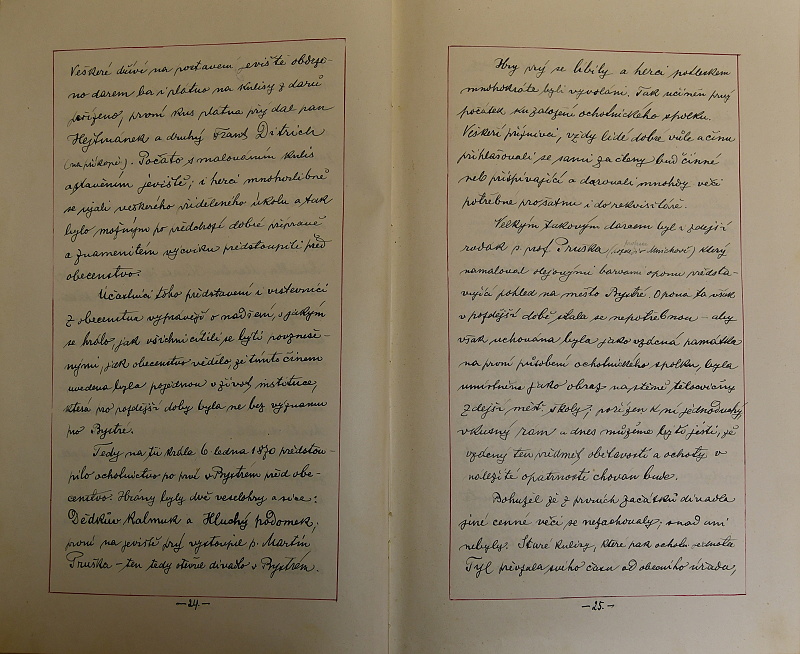 Veškeré dříví na postavení jeviště obdrže-
no darem ba i plátno na kulisy z darů
pořízeno, první kus plátna prý dal pan
Hejtmánek a druhý Frant. Ditrich
(na příkopě). Počato s malováním kulis
a stavěním jeviště; i herci mnohoslibně
se ujali veškerého přiděleného úkolu a tak
bylo možným po předchozí dobré přípravě
a znamenitém výcviku předstoupiti před
obecenstvo.
Účastníci toho představení i vrstevníci
z obecenstva vypravují o nadšení, s jakým
se hrálo, jak všichni cítili se býti povznese-
nými, jak obecenstvo vědělo, že tímto činem
uvedena byla pojednou v život instituce,
která pro pozdější doby byla ne bez významu
pro Bystré.
Tedy na tři krále 6. ledna 1870 předstou-
pilo ochotnictvo po prvé v Bystrém před obe-
censtvo. Hrány byly dvě veselohry a sice:
Dědkův Kalmuk a Hluchý podomek;
první na jeviště prý vystoupil p. Martin
Pruška – ten tedy otevřel divadlo v Bystrém.
– 24. –
Hry prý se líbily a herci potleskem
mnohokráte byli vyvoláni. Tak učiněn prvý
počátek ku založení ochotnického spolku.
Veškeří příznivci, vždy lidé dobré vůle a činu
přihlašovali se sami za členy buď činné
neb přispívající a darovali mnohdy věci
potřebné pro šatnu i do rekvisitáře.
Velkým takovým darem byl z zdejší
rodák p. prof. Pruška v Mnichově) který
namaloval olejovými barvami oponu předsta-
vující pohled na město Bystré. Opona ta však
v pozdější době stala se nepotřebnou – aby
však uchována byla jako vzácná památka
na první působení ochotnického spolku, byla
umístněna jako obraz na stěně tělocvičny
zdejší měst. školy, pořízen k ní jednoduchý
vkusný rám a dnes můžeme býti jisti, že
vzácný ten předmět obětavosti a ochoty v
náležité opatrnosti chován bude.
Bohužel že z prvních začátků divadla
jiné cenné věci se nezachovaly; snad ani
nebyly. Staré kulisy, které pak ochotn. jednota
Tyl převzala svého času od obecního úřadu,
– 25. –